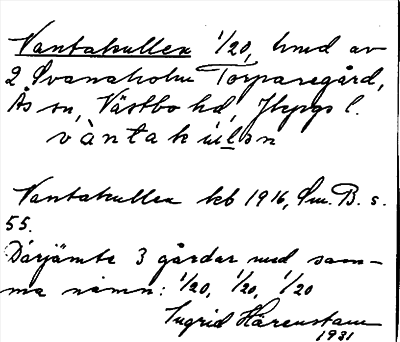 Vantakullen 1/20, hmd av
2 Svanaholm Torparegård,
Ås sn, Västbo hd, Jkpgs l.
vàntakulən
Vantakullen kb 1916, Sm. B. s.
55.
Därjämte 3 gårdar med sam-
ma namn: 1/20, 1/20, 1/20
Ingrid Härenstam
1931